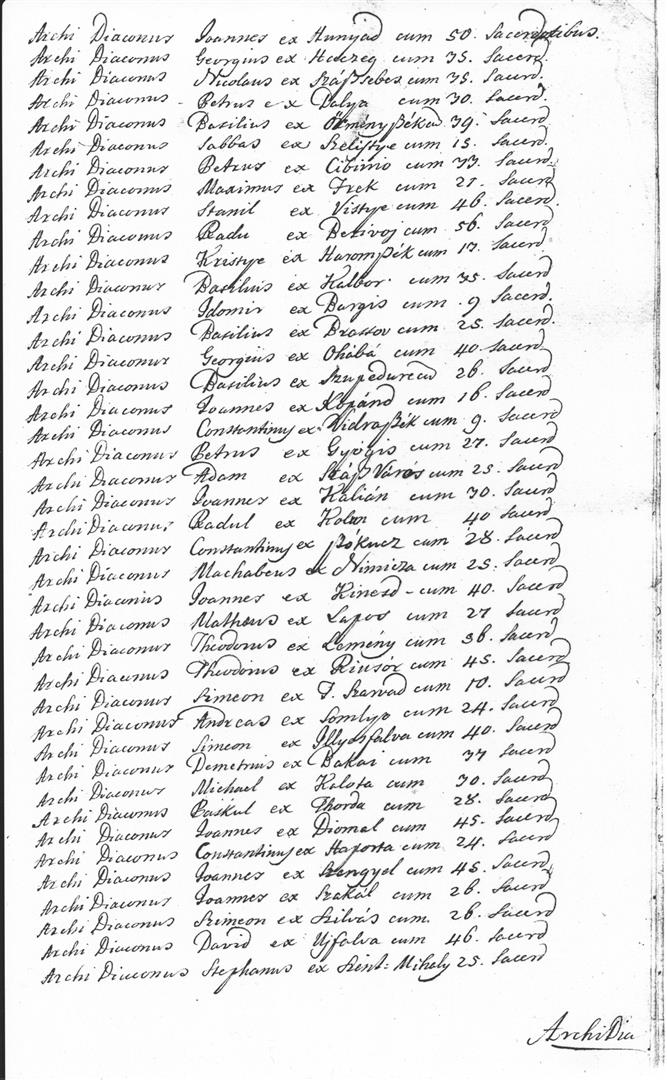 Archi Diaconus Joannes ex Hunyad cum 50. Sacerdotibus.
Archi Diaconus Georgius ex Haczeg cum 35. Sacerd.
Archi Diaconus Nicolaus ex Szászsebes cum 35. Sacerd.
Archi Diaconus Petrus ex Dalya cum 30. Sacerd.
Archi Diaconus Basilius ex cum 39. Sacerd
Archi Diaconus Sabbas ex Szelistye cum 15. Sacerd
Archi Diaconus Petrus ex Cibinio cum 33. Sacerd.
Archi Diaconus Maximus ex Frek cum 27. Sacerd
Archi Diaconus Stanil ex Vistye cum 46. Sacerd
Archi Diaconus Radu ex Berivoj cum 56. Sacerd
Archi Diaconus Kristye ex Haromszék cum 17. Sacerd
Archi Diaconus Basilius ex Kalbor cum 35. Sacerd
Archi Diaconus Idomir ex Bargis cum 9 Sacerd.
Archi Diaconus Basilius ex Brassov cum 25. Sacerd.
Archi Diaconus Georgius ex Ohábá cum 40. Sacerd
Archi Diaconus Basilius ex cum 26. Sacerd
Archi Diaconus Joannes ex Koppánd cum 16. Sacerd
Archi Diaconus Constantinus ex Vidraszék cum 9. Sacerd
Archi Diaconus Petrus ex Gyógis cum 27. Sacerd
Archi Diaconus Adam ex Szász Város cum 25. Sacerd
Archi Diaconus Joannes ex Kalián cum 30. Sacerd
Archi Diaconus Radul ex cum 40 Sacerd
Archi Diaconus Constantinus ex cum 28. Sacerd
Archi Diaconus Machabeus ex Nimicza cum 25. Sacerd
Archi Diaconus Joannes ex Kinesd - cum 40. Sacerd
Archi Diaconus Matheus ex Lapos cum 27 Sacerd
Archi Diaconus Theodorus ex Lemény cum 36. Sacerd
Archi Diaconus Theodorus ex Riusór cum 45. Sacerd
Archi Diaconus Simeon ex F. Szarvad cum 10. Sacerd
Archi Diaconus Andreas ex Somlyo cum 24. Sacerd
Archi Diaconus Simeon ex Illyésfalva cum 40. Sacerd
Archi Diaconus Demetrius ex Bakai cum 37 Sacerd
Archi Diaconus Michael ex Kalota cum 30. Sacerd
Archi Diaconus Paskul ex Thorda cum 28. Sacerd
Archi Diaconus Joannes ex Diomal cum 45. Sacerd
Archi Diaconus Constantinus ex Haporta cum 24. Sacerd
Archi Diaconus Joannes ex Szengyel cum 45. Sacerd
Archi Diaconus Joannes ex Szakál cum 26. Sacerd
Archi Diaconus Szimeon ex Szilvás cum. 26. Sacerd
Archi Diaconus David ex Ujfalva cum 46. Sacerd
Archi Diaconus Stephanus ex Szent: Mihaly 25. Sacerd
ArchiDia